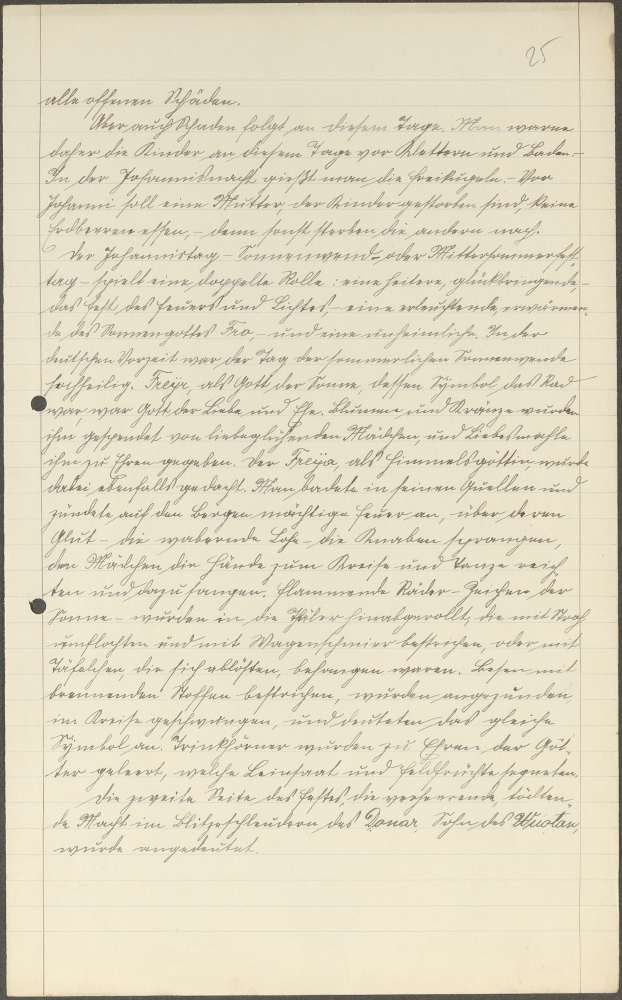 25
alle offenen Schäden.
Aber auch Schaden folgt an diesem Tage. Man warne
daher die Kinder an diesem Tage vor Klettern und Baden. –
In der Johannisnacht gießt man die Freikugeln. – Vor
Johanni soll eine Mutter, der Kinder gestorben sind, keine
Erdbeeren essen, – denn sonst sterben die andern nach.
Der Johannistag – Sonnenwend- oder Mittersommerfest-
tag – spielt eine doppelte Rolle: eine heitere, glückbringende –
das Fest des Feuers und Lichtes, – eine erleuchtende, erwärmen-
de des Sonnengottes Fro, – und eine unheimliche. In der
deutschen Vorzeit war der Tag der sommerlichen Sonnenwende
hochheilig. Freyr, als Gott der Sonne, dessen Symbol das Rad
war, war Gott der Liebe und Ehe. Blumen und Kränze wurden
ihm gespendet von liebeglühenden Mädchen, und Liebesmahle
ihm zu Ehren gegeben. Der Freya, als Himmelsgöttin, wurde
dabei ebenfalls gedacht. Man badete in seinen Quellen und
zündete auf den Bergen mächtige Feuer an, über deren
Glut – die wabernde Lohe – die Knaben sprangen,
den Mädchen die Hände zum Kreise und Tanze reich-
ten und dazu sangen. Flammende Räder – Zeichen der
Sonne – wurden in die Thäler hinabgerollt, die mit Stroh
umflochten und mit Wagenschmier bestrichen, oder mit
Täfelchen, die sich ablösten, behangen waren. Besen mit
brennenden Stoffen bestrichen, wurden angezunden
im Kreise geschwungen, und deuteten das gleiche
Symbol an. Trinkhörner wurden zu Ehren der Göt-
ter geleert, welche Leinsaat und Feldfrüchte segneten.
Die zweite Seite des Festes, die verheerende, tödten-
de Macht im Blitzeschleudern des Donar, Sohn des Wuotan,
wurde angedeutet.